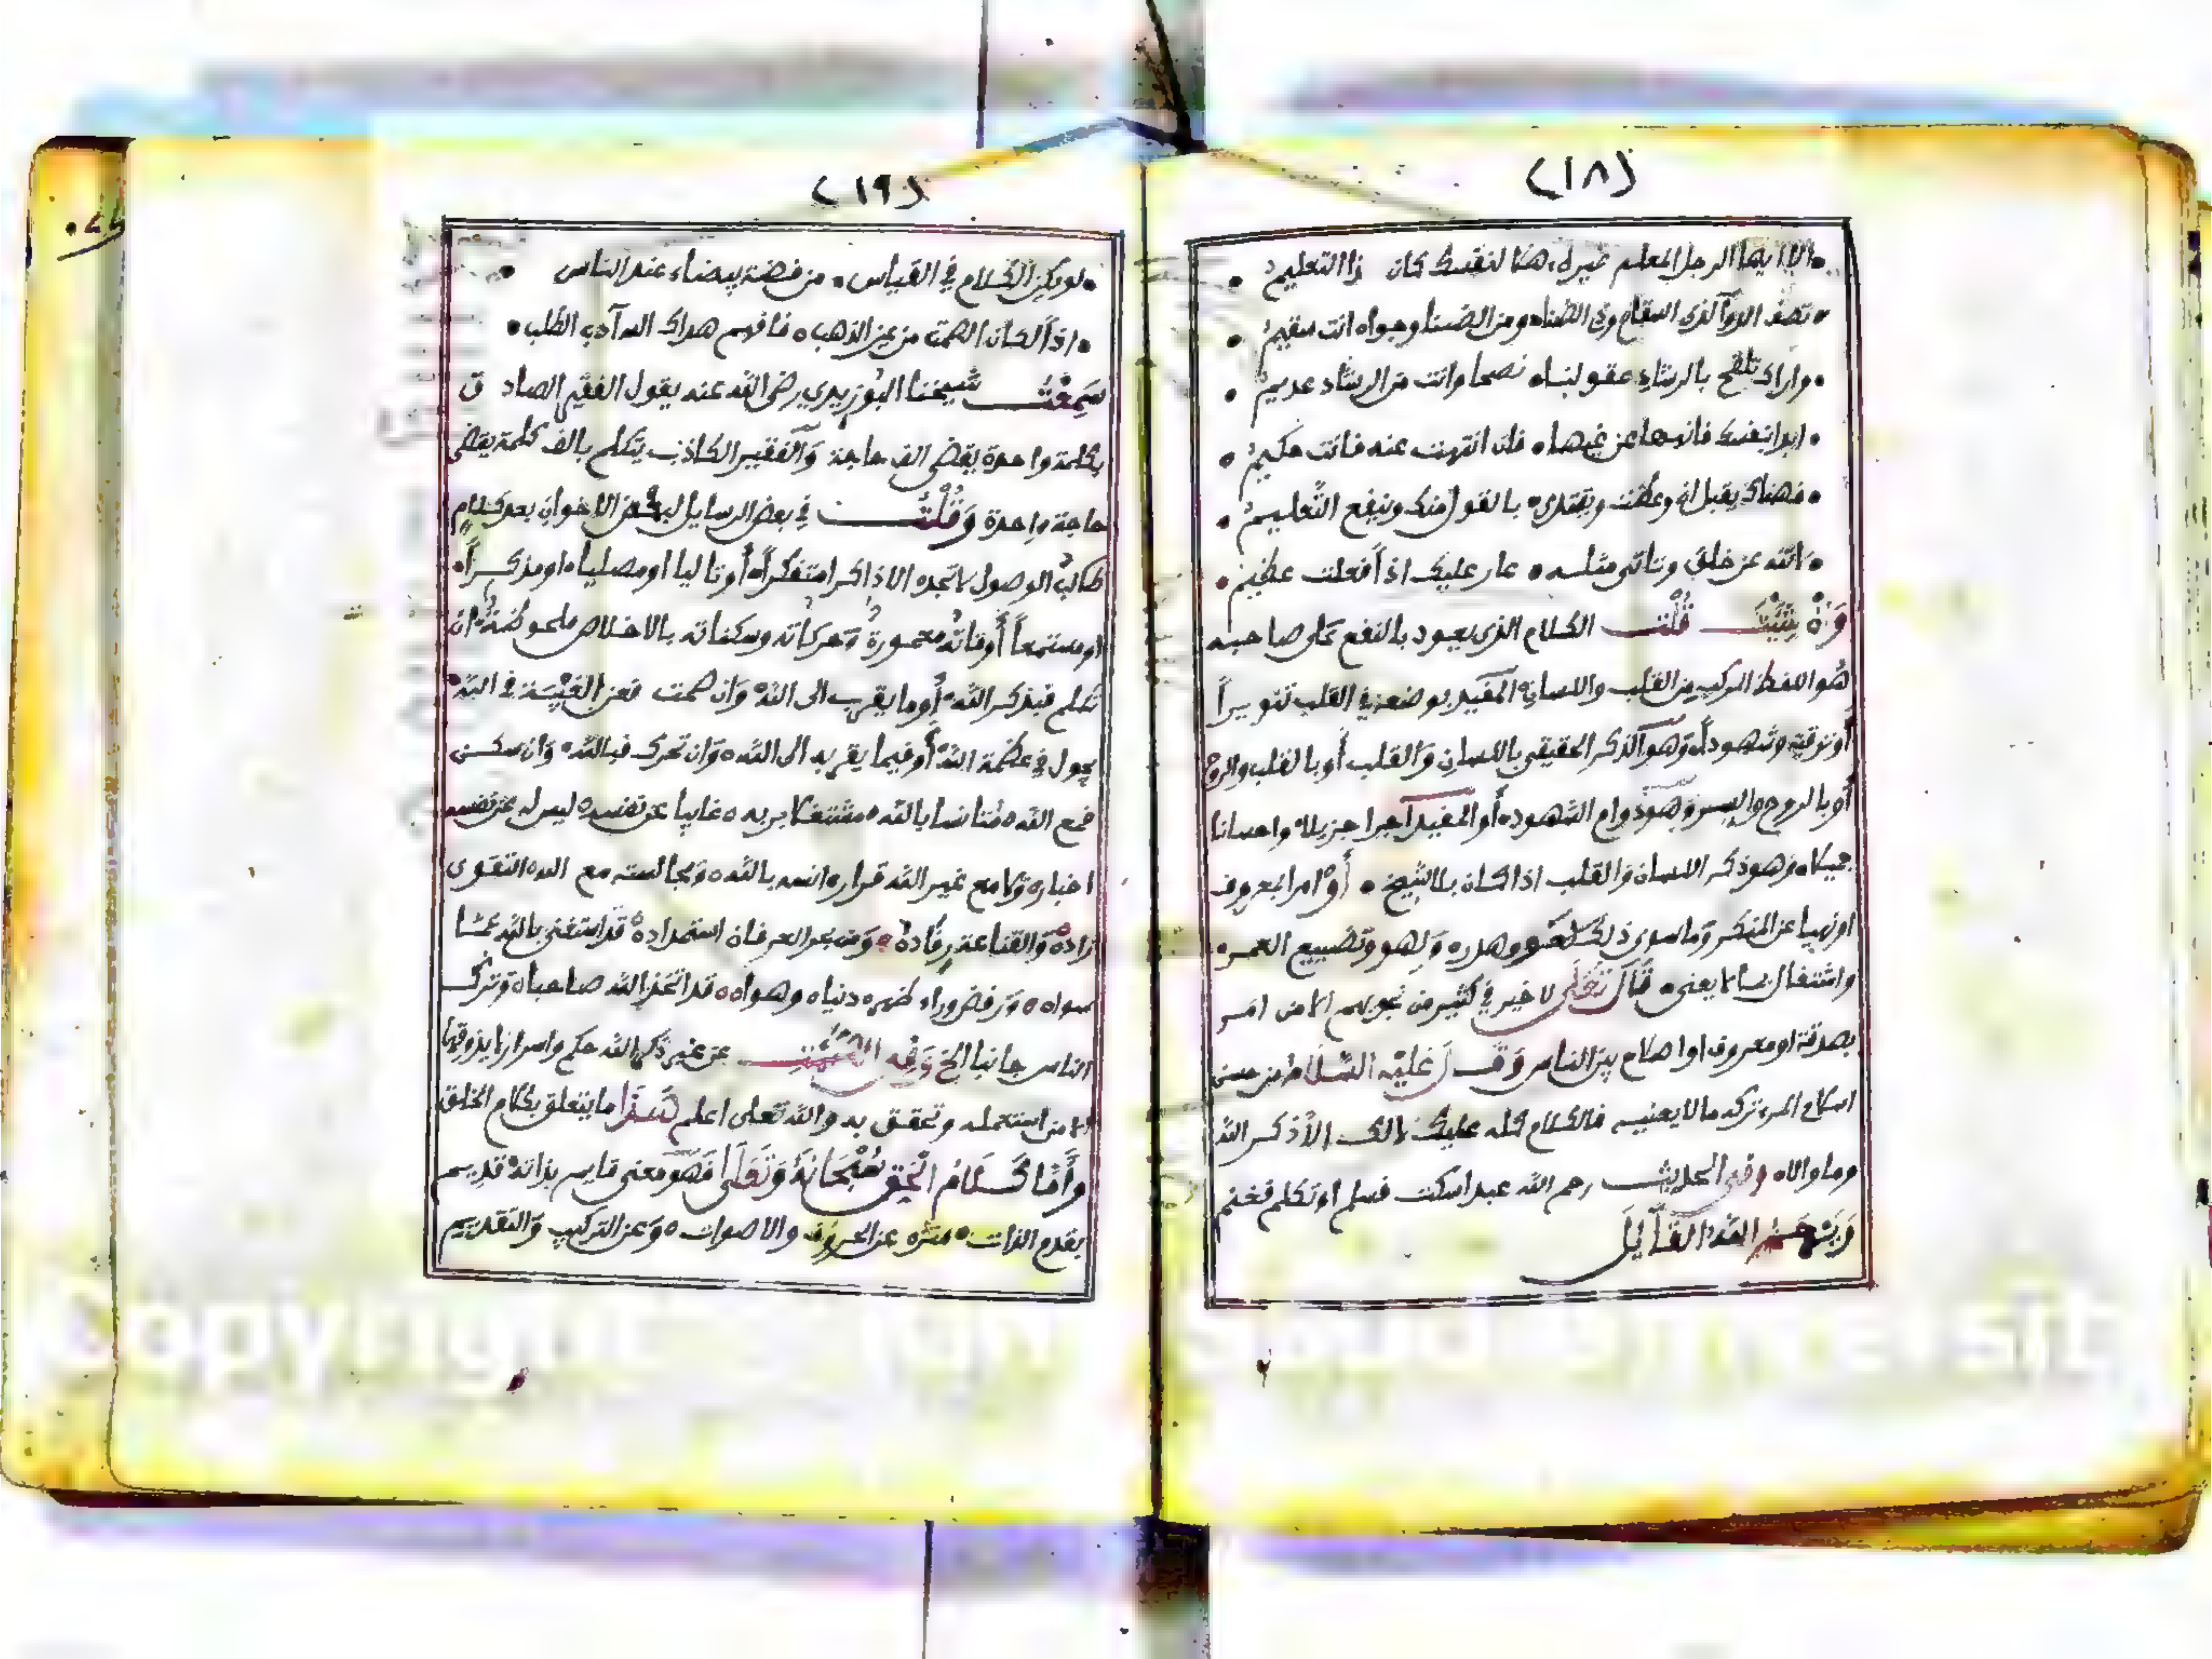 (١٨)
الا ايها الرجل المعلم غيره ، هلا لنفسك كان ذا التعليم
تصف الدوا لذي السقام وذي الضنا ومن الضنا وجواه انت سقيم
واراك تلقح بالرشاد عقولنا نصحا وانت من الرشاد عديم
ابدا بنفسك فانهها عن غيها فان انتهت عنه فانت حكيم
فهناك يقبل ان وعظت ويقتدى بالقول منك وينفع التعليم
لا تنه عن خلق وتاتي مثله عار عليك اذا فعلت عظيم
وان شئت قلت الكلام الذي يعود بالنفع على صاحبه
هو اللفظ المركب من القلب واللسان المفيد بوضعه في القلب تنويراً
أو ترقية وشهودا وهو الذكر الحقيقي باللسان والقلب أو بالقلب والروح
أو بالروح والسر وهو دوام الشهود أو المفيد اجرا جزيلا واحسانا
جميلا وهو ذكر اللسان والقلب اذا كان بلا شيخ أو امرا بمعروف
او نهيا عن المنكر وما سوى ذلك لغو وهدر ولهو وتضييع العمر
واشتغال بما لا يعني قال تعالى لا خير في كثير من نجويهم الا من امر
بصدقة او معروف او اصلاح بين الناس وقال عليه السلام من حسن
اسلام المرء تركه ما لا يعنيه فالكلام كله عليك لا لك الا ذكر الله
وما والاه وفي الحديث رحم الله عبدا سكت فسلم او تكلم فغنم
ويرحم الله القايل
(١٩)
لو يكن الكلام في القياس من فضة بيضاء عند الناس
اذاً لكان الصمت من عين الذهب فافهم هداك الله آداب الطلب
سمعت شيخنا البوزيدي رضي الله عنه يقول الفقير الصادق
بكلمة واحدة يقضي الف حاجة والفقير الكاذب يتكلم بالف كلمة يقضي
حاجة واحدة وقلت في بعض الرسايل لبعض الاخوان بعد كلام
طالب الوصول لا تجده الا ذاكرا متفكراً أو تاليا او مصليا او مذكراً
او مستمعاً أوقاته معمورة وحركاته وسكناته بالاخلاص ملحوظة ان
تكلم فبذكر الله أو ما يقرب الى الله وان صمت فعن الغيبة في الله
يجول في عظمة الله أو فيما يقربه الى الله وان تحرك فبالله وان سكن
فمع الله مستانسا بالله مشتغلا بربه غايبا عن نفسه ليس له عن نفسه
اخبار ولا مع غير الله قرار انسه بالله ومجالسته مع الله التقوى
زاده والقناعة رقاده ومن بحر العرفان استمداده قد استغنى بالله عما
سواه ورفض وراء ظهره دنياه وهواه قد اتخذ الله صاحبا وترك
الناس جانبا الخ وفي الصمت عن غير ذكر الله حكم واسرار لا يذوقها
الا من استعمله وتحقق به والله تعلى اعلم هذا ما يتعلق بكلام الخلق
وأما كلام الحق سبحانه وتعلى فهو معنى قايم بذاته قديم
بقدم الذات منزه عن الحروف والاصوات وعن التركيب والتقديم